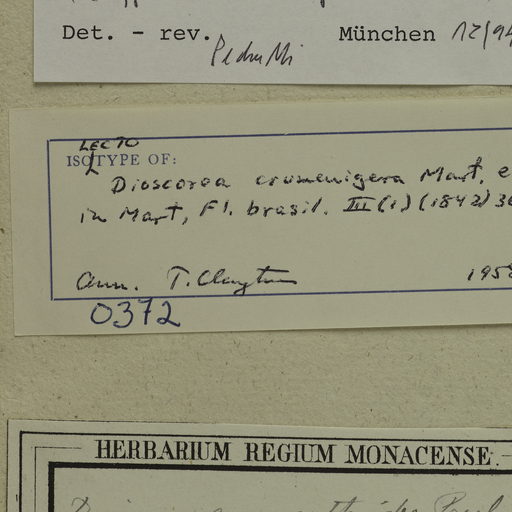 Det. - rev. München 12/94
LECTO
ISOTYPE OF:
Dioscorea crumenigera Mart. e
in Mart, Fl. brasil. III (1) (1842) 36
Ann. T. Clayton 1958
0372
HERBARIUM REGIUM MONACENSE.